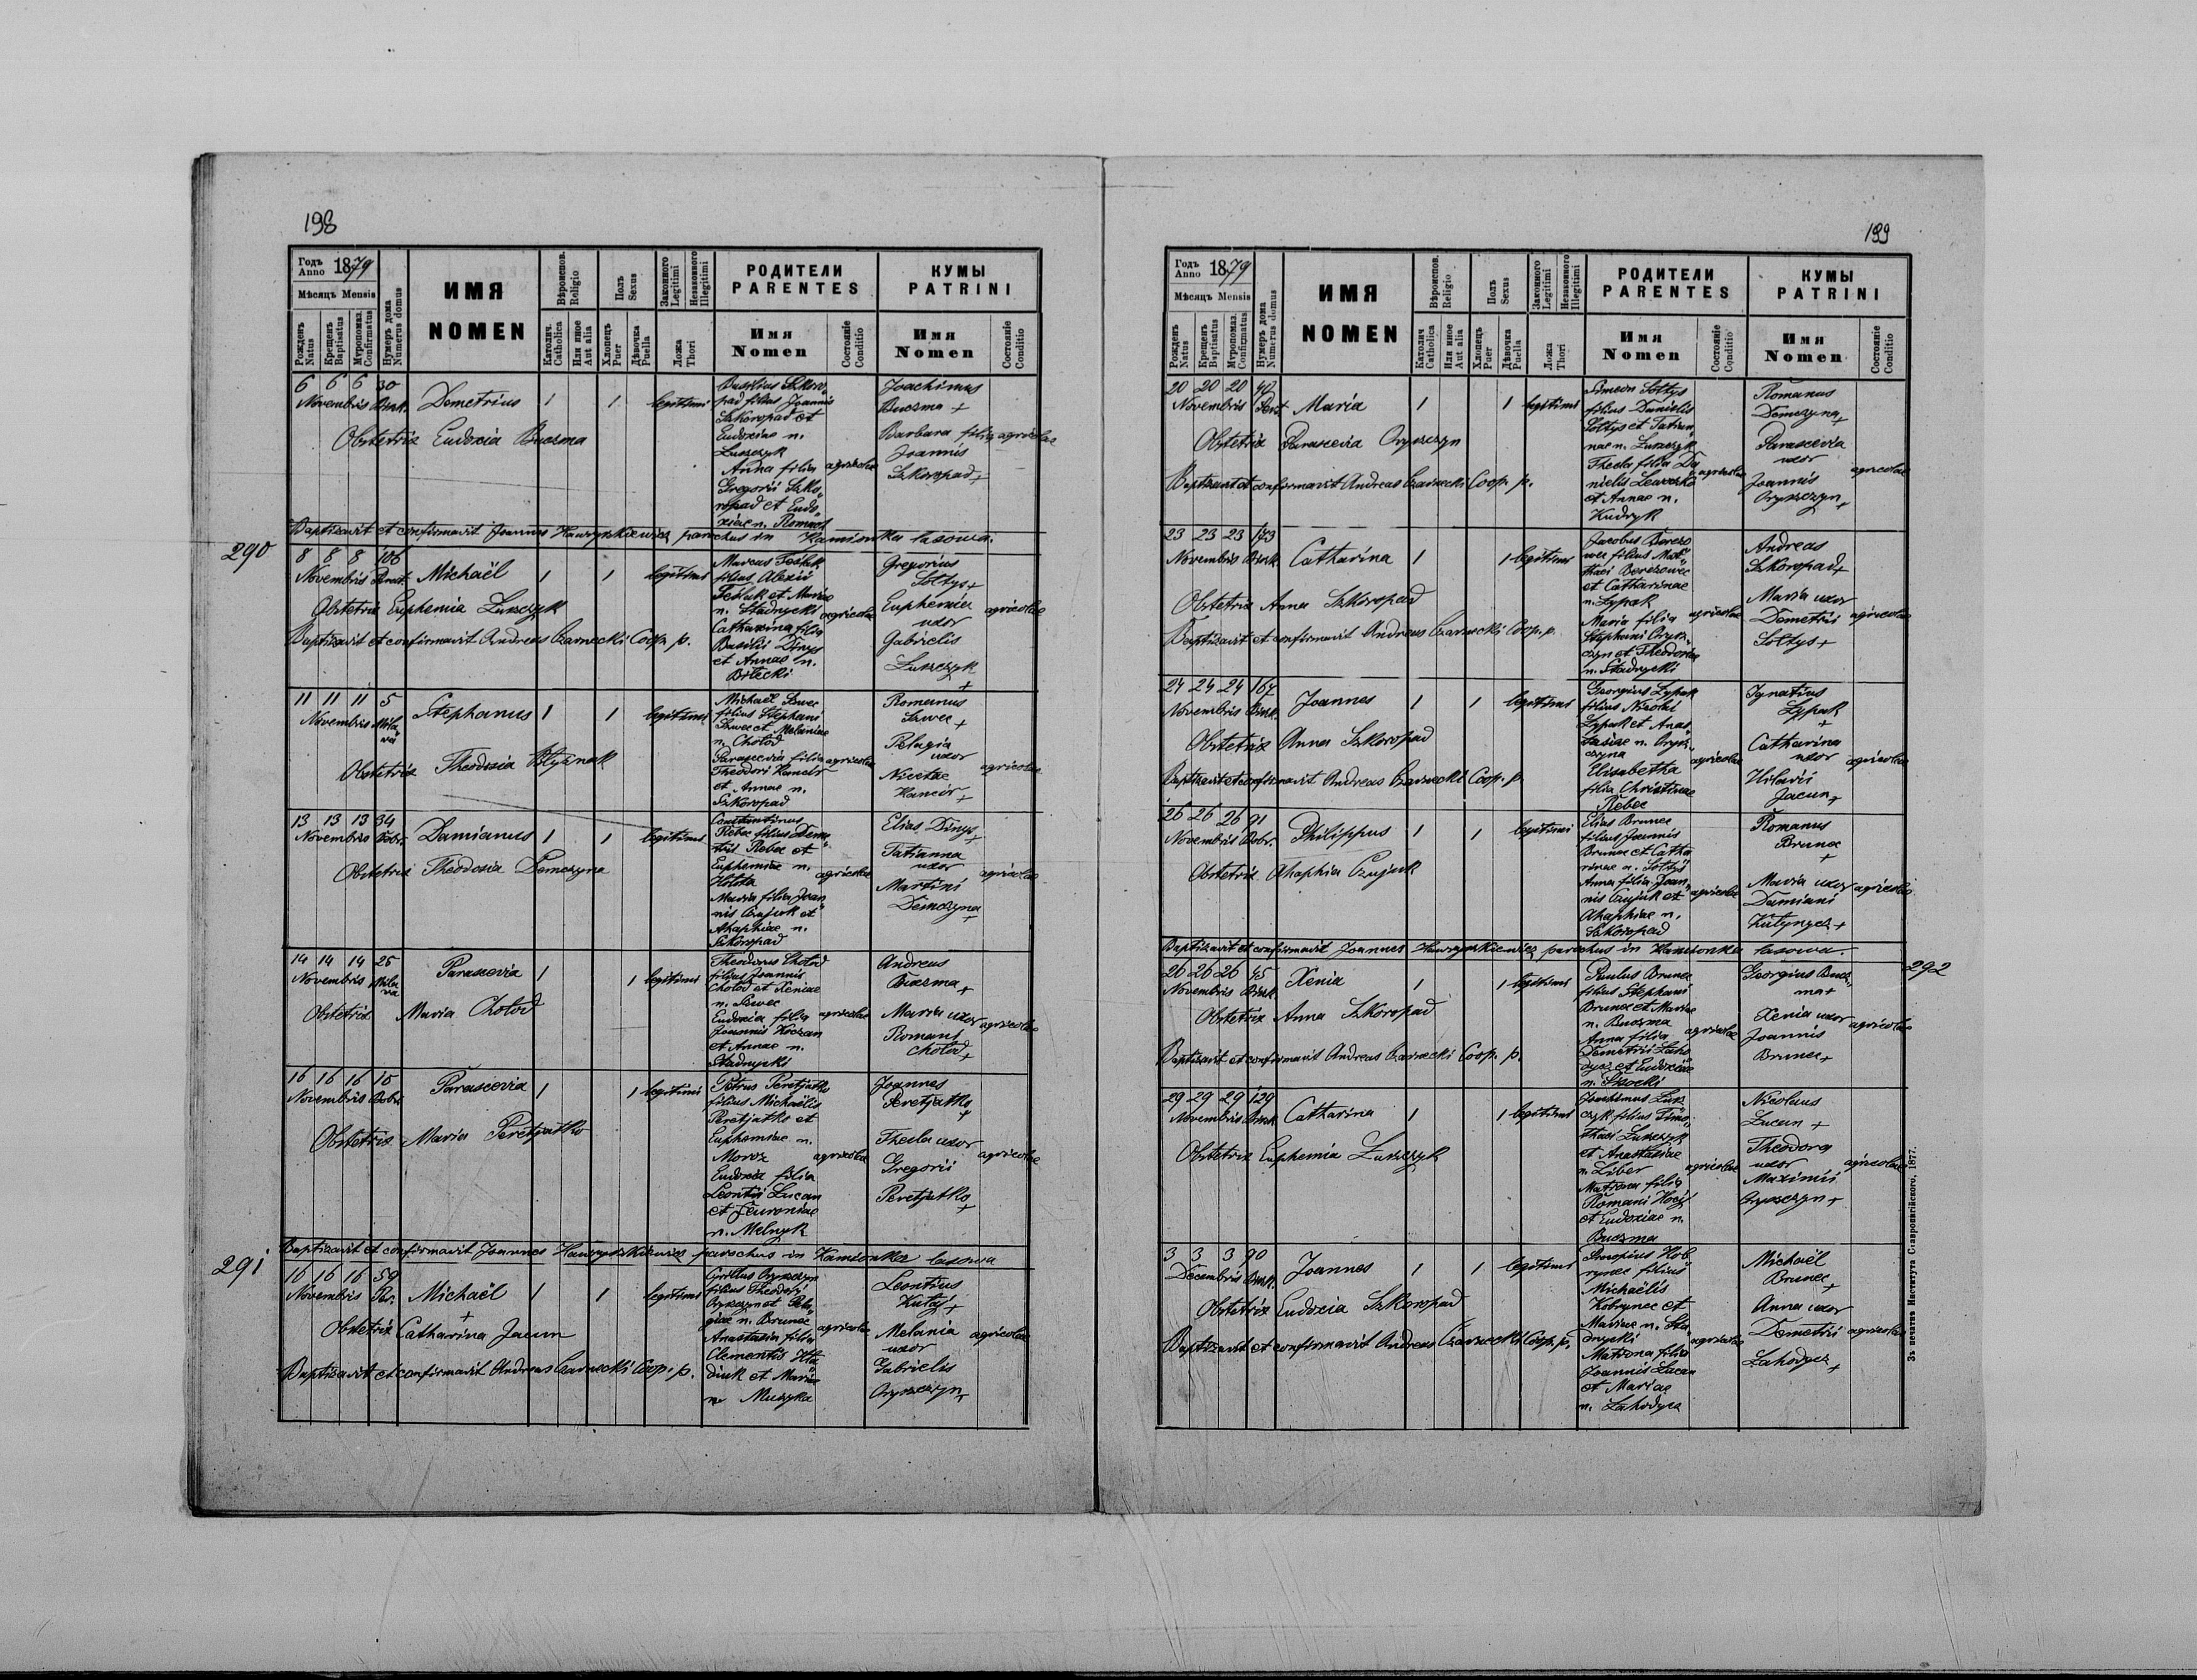 198
Годъ Anno 1879
Мѣсяцъ Mensis
Рожденъ Natus
Крещенъ Baptisatus
Мѵропомаз. Confirmatus
Нумеръ дома Numerus domus
ИМЯ
NOMEN
Вѣроиспов. Religio
Католич. Catholica
Или иное Aut alia
Полъ Sexus
Хлопець Puer
Дѣвочка Puella
Законного Legitimi
Незаконного Illegitimi
Ложа Thori
РОДИТЕЛИ
PARENTES
Имя Nomen
Состоянie Conditio
КУМЫ
PATRINI
Имя Nomen
Состоянie Conditio
6 6 6 30
Novembris
Demetrius
1 1 legitimi
Basilius Szkoro„
pad filius Joannis
Szkoropad et
Eudoxiae n.
Łuszczyk
Anna filia
Gregorii Szko„
ropad et Eudo„
xiae n.
agricolae
Joachimus
Buczma +
Barbara filia
Joannis
Szkoropad +
agricolae
Obstetrix Eudoxia Buczma
Baptisavit et confirmavit Joannes Hawryszkiewicz parochus in Kamionka lasowa.
290
8 8 8 106
Novembris
Michaël
1 1 legitimi
Marcus
filius Alexii
et Mariae
n. Stadnycki
Catharina filia
Basilii Dinys
et Annae n.
Biłecki
agricolae
Gregorius
Sołtys +
Euphemia
uxor
Gabrielis
Łuszczyk
+
agricolae
Obstetrix Euphemia Łuszczyk
Baptisavit et confirmavit Andreas Czarnecki Coop. p.
11 11 11 5
Novembris
Stephanus
1 1 legitimi
Michaël Szwec
filius Stephani
Szwec et Melaniae
n. Chołod
Parascevia filia
Theodori Hancár
et Annae n.
Szkoropad
agricolae
Romanus
Szwec +
Pelagia
uxor
Nicetae
Hancár +
agricolae
Obstetrix Theodosia
13 13 13 34
Novembris Dobr.
Damianus
1 1 legitimi
Constantinus
Rebec filius Deme„
trii Rebec et
Euphemiae n.
Hołota
Maria filia Joan„
nis Czujuk et
Ahaphiae n.
Szkoropad
agricolae
Elias Dinys +
Tatianna
uxor
Martini
Demczyna +
agricolae
Obstetrix Theodosia Demczyna
14 14 14 25
Novembris
Parascevia
1 1 legitimi
Theodorus Chołod
filius Joannis
Chołod et Xeniae
n. Szwec
Eudoxia filia
Joannis Koczan
et Annae n.
Stadnycki
agricolae
Andreas
Buczma +
Maria uxor
Romani
Chołod +
agricolae
Obstetrix Maria Chołod
16 16 16 15
Novembris Dobr.
Parascevia
1 1 legitimi
Petrus Peretjatko
filius Michaëlis
Peretjatko et
Euphemiae n.
Moroz
Eudoxia filia
Leontii Lucan
et Feuroniae
n. Melnyk
agricolae
Joannes
Peretjatko
+
Thecla uxor
Gregorii
Peretjatko
+
agricolae
Obstetrix Maria Peretjatko
Baptisavit et confirmavit Joannes Hawryszkiewicz parochus in Kamionka lasowa
291
16 16 16 59
Novembris
Michaël
+
1 1 legitimi
Cyrillus Oryszczyn
filius Theodori
Oryszczyn et Pela„
giae n. Brunec
Anastasia filia
Clementis Hła„
diuk et Mariae
n. Muszka
agricolae
Leontius
Kutyj +
Melania
uxor
Gabrielis
Oryszczyn +
agricolae
Obstetrix Catharina Jacun
Baptisavit et confirmavit Andreas Czarnecki Coop. p.
199
Годъ Anno 1879
Мѣсяцъ Mensis
Рожденъ Natus
Крещенъ Baptisatus
Мѵропомаз. Confirmatus
Нумеръ дома Numerus domus
ИМЯ
NOMEN
Вѣроиспов. Religio
Католич Catholica
Или иное Aut alia
Полъ Sexus
Хлопець Puer
Дѣвочка Puella
Законного Legitimi
Незаконного Illegitimi
Ложа Thori
РОДИТЕЛИ
PARENTES
Имя Nomen
Состоянie Conditio
КУМЫ
PATRINI
Имя Nomen
Состоянie Conditio
20 20 20
Novembris
Maria
1 1 legitimi
Simeon Sołtys
filius Danielis
Sołtys et Tatian„
nae n. Łuszczyk
Thecla filia Da„
nielis
et Annae n.
Kudryk
agricolae
Romanus
Demczyna +
Parascevia
uxor
Joannis
Oryszczyn +
agricolae
Obstetrix Parascevia Oryszczyn
Baptisavit et confirmavit Andreas Czarnecki Coop. p.
23 23 23 173
Novembris
Catharina
1 1 legitimi
Jacobus Berezo„
wec filius Mat„
thaei Berezowec
et Catharinae
n. Łypak
Maria filia
Stephani Orysz„
czyn et Theodoriae
n. Stadnycki
agricolae
Andreas
Szkoropad +
Maria uxor
Demetrii
Sołtys +
agricolae
Obstetrix Anna Szkoropad
Baptisavit et confirmavit Andreas Czarnecki Coop. p.
24 24 24 167
Novembris
Joannes
1 1 legitimi
Georgius Łypak
filius Nicolai
Łypak et Anas„
tasiae n. Orysz„
czyna
Elisabetha
filia Christinae
Rebec
agricolae
Ignatius
Łypak
+
Catharina
uxor
Hilarii
Jacun +
agricolae
Obstetrix Anna Szkoropad
Baptisavit et confirmavit Andreas Czarnecki Coop. p.
26 26 26 91
Novembris Dobr.
Philippus
1 1 legitimi
Elias Brunec
filius Joannis
Brunec et Catha„
rinae n. Sołtys
Anna filia Joan„
nis Czujuk et
Ahaphiae n.
Szkoropad
agricolae
Romanus
Brunec
+
Maria uxor
Damiani
Kutynycz +
agricolae
Obstetrix Ahaphia Czujuk
Baptisavit et confirmavit Joannes Hawryszkiewicz parochus in Kamionka lasowa.
292
26 26 26 45
Novembris
Xenia
1 1 legitimi
Paulus Brunec
filius Stephani
Brunec et Mariae
n. Buczma
Anna filia
Demetrii Łaho„
dycz et Eudoxiae
n. Skocki
agricolae
Georgius Bucz„
ma +
Xenia uxor
Joannis
Brunec +
agricolae
Obstetrix Anna Szkoropad
Baptisavit et confirmavit Andreas Czarnecki Coop. p.
29 29 29 129
Novembris
Catharina
1 1 legitimi
Joachimus Łusz„
czyk filius Timo„
thaei Łuszczyk
et Anastasiae
n. Liber
Matrona filia
Romani Hocij
et Eudoxiae n.
Buczma
agricolae
Nicolaus
Lucun +
Theodora
uxor
Maximii
Oryszczyn +
agricolae
Obstetrix Euphemia Łuszczyk
3 3 3 90
Decembris
Joannes
1 1 legitimi
Procopius Kob„
rynec filius
Michaëlis
Kobrynec et
Mariae n. Sta„
dnycki
Matrona filia
Joannis Lucan
et Mariae
n. Łahodycz
agricolae
Michaël
Brunec +
Anna uxor
Demetrii
Łahodycz +
agricolae
Obstetrix Eudoxia Szkoropad
Baptisavit et confirmavit Andreas Czarnecki Coop. p.
Зъ печатнѣ Института Ставропигійского, 1877.